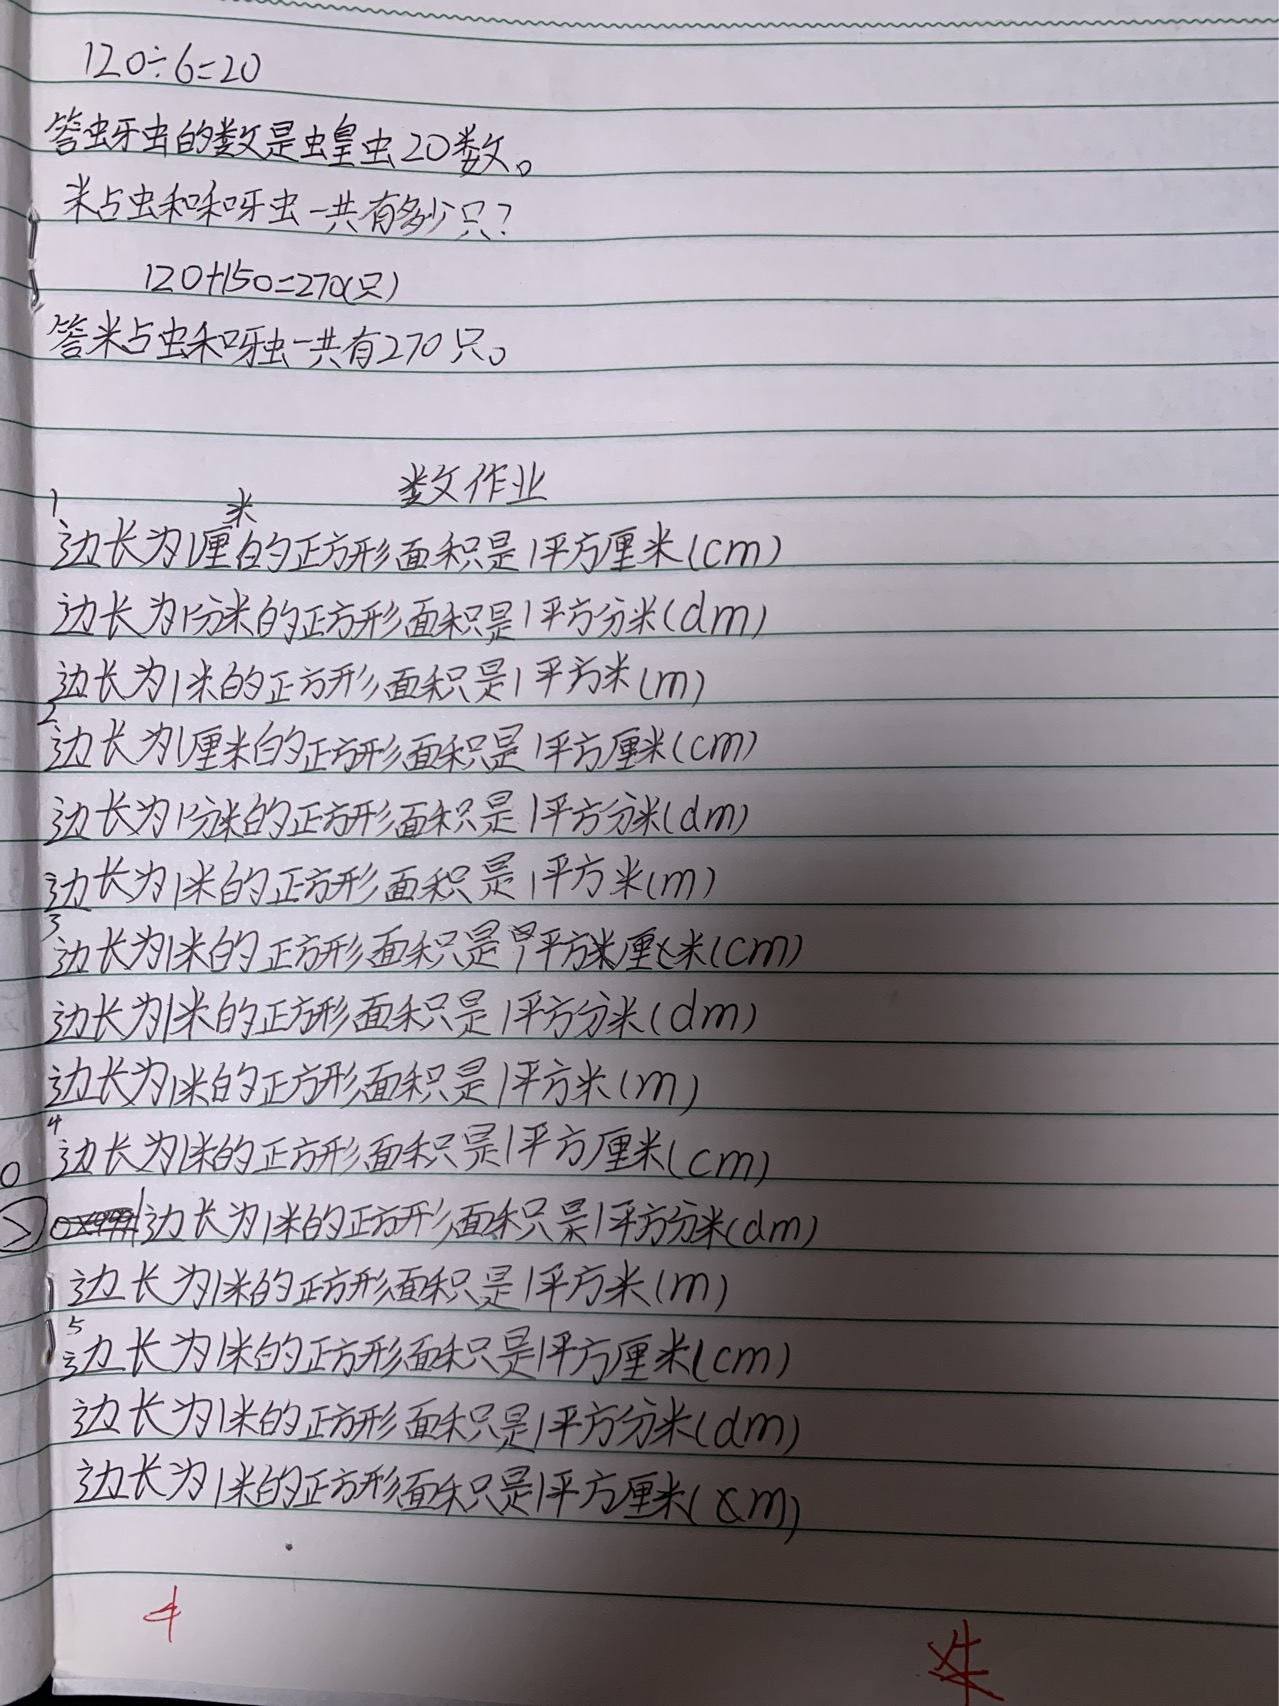 120÷6=20
答虫牙虫的数是虫皇虫20数。
米占虫和和呀虫一共有多少只?
120+150=270(只)
答米占虫和呀虫一共有270只。
数作业
1
边长为1厘米的正方形面积是1平方厘米(cm)
边长为1分米的正方形面积是1平方分米(dm)
边长为1米的正方形面积是1平方米(m)
2
边长为1厘米的正方形面积是1平方厘米(cm)
边长为1分米的正方形面积是1平方分米(dm)
边长为1米的正方形面积是1平方米(m)
3
边长为1米的正方形面积是1平方米厘米(cm)
边长为1米的正方形面积是1平方分米(dm)
边长为1米的正方形面积是1平方米(m)
4
边长为1米的正方形面积是1平方厘米(cm)
边长为1米的正方形面积是1平方分米(dm)
边长为1米的正方形面积是1平方米(m)
5
边长为1米的正方形面积是1平方厘米(cm)
边长为1米的正方形面积是1平方分米(dm)
边长为1米的正方形面积是1平方厘米(cm)